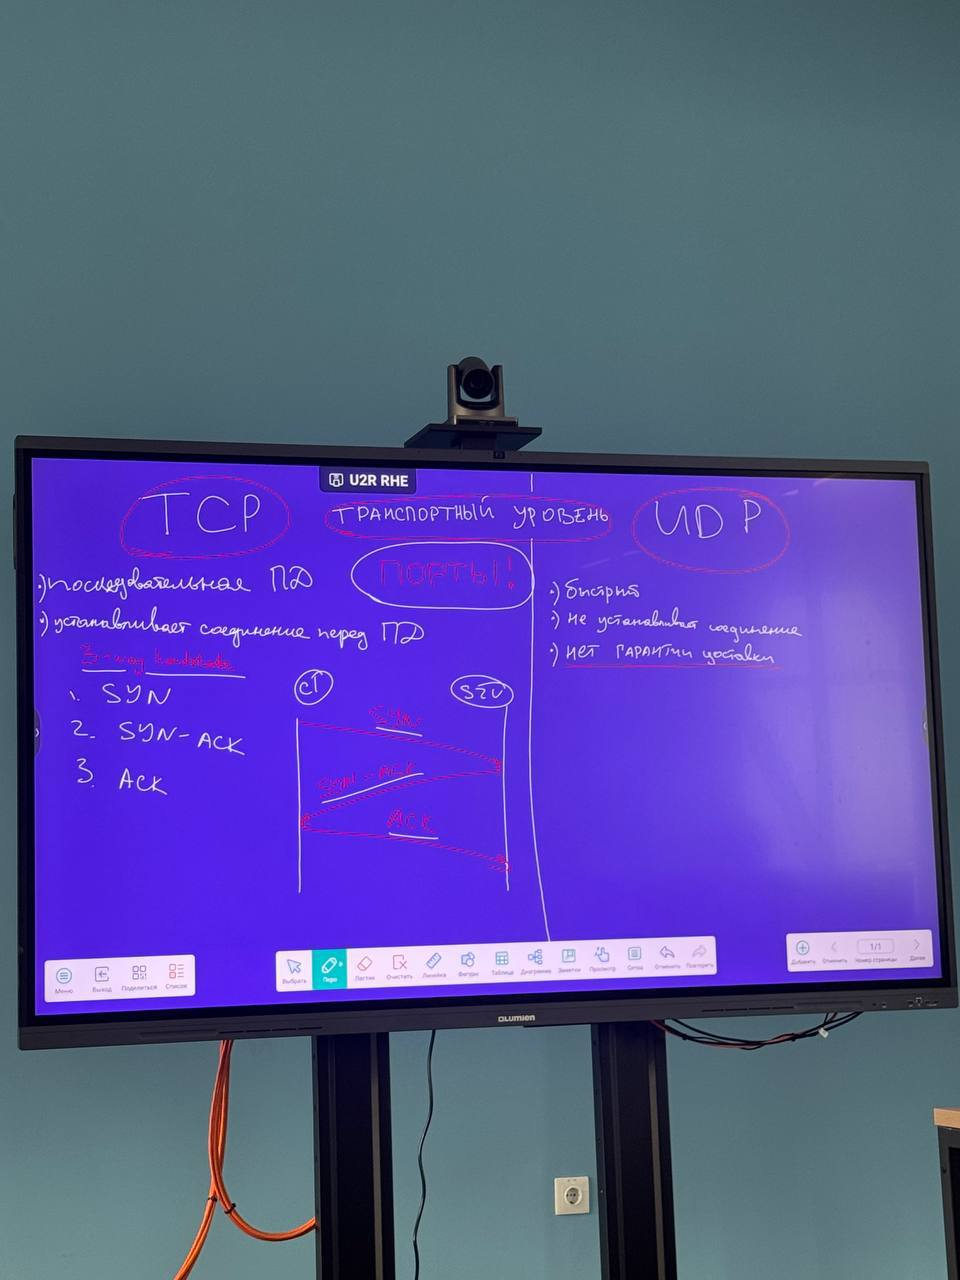 U2R RHE
TCP
ТРАНСПОРТНЫЙ УРОВЕНЬ
UDP
ПОРТЫ!
•) последовательная ПД
•) устанавливает соединение перед ПД
3-way handshake
1. SYN
2. SYN-ACK
3. ACK
SYN
SYN-ACK
ACK
•) быстрый
•) не устанавливает соединение
•) НЕТ ГАРАНТИИ доставки
Меню
Выход
Поделиться
Список
Выбрать
Перо
Ластик
Очистить
Линейка
Фигуры
Таблица
Диаграмма
Заметки
Просмотр
Склад
Отменить
Повторить
Добавить
Отменить
1/1
Номер страницы
Далее
LUMIEN